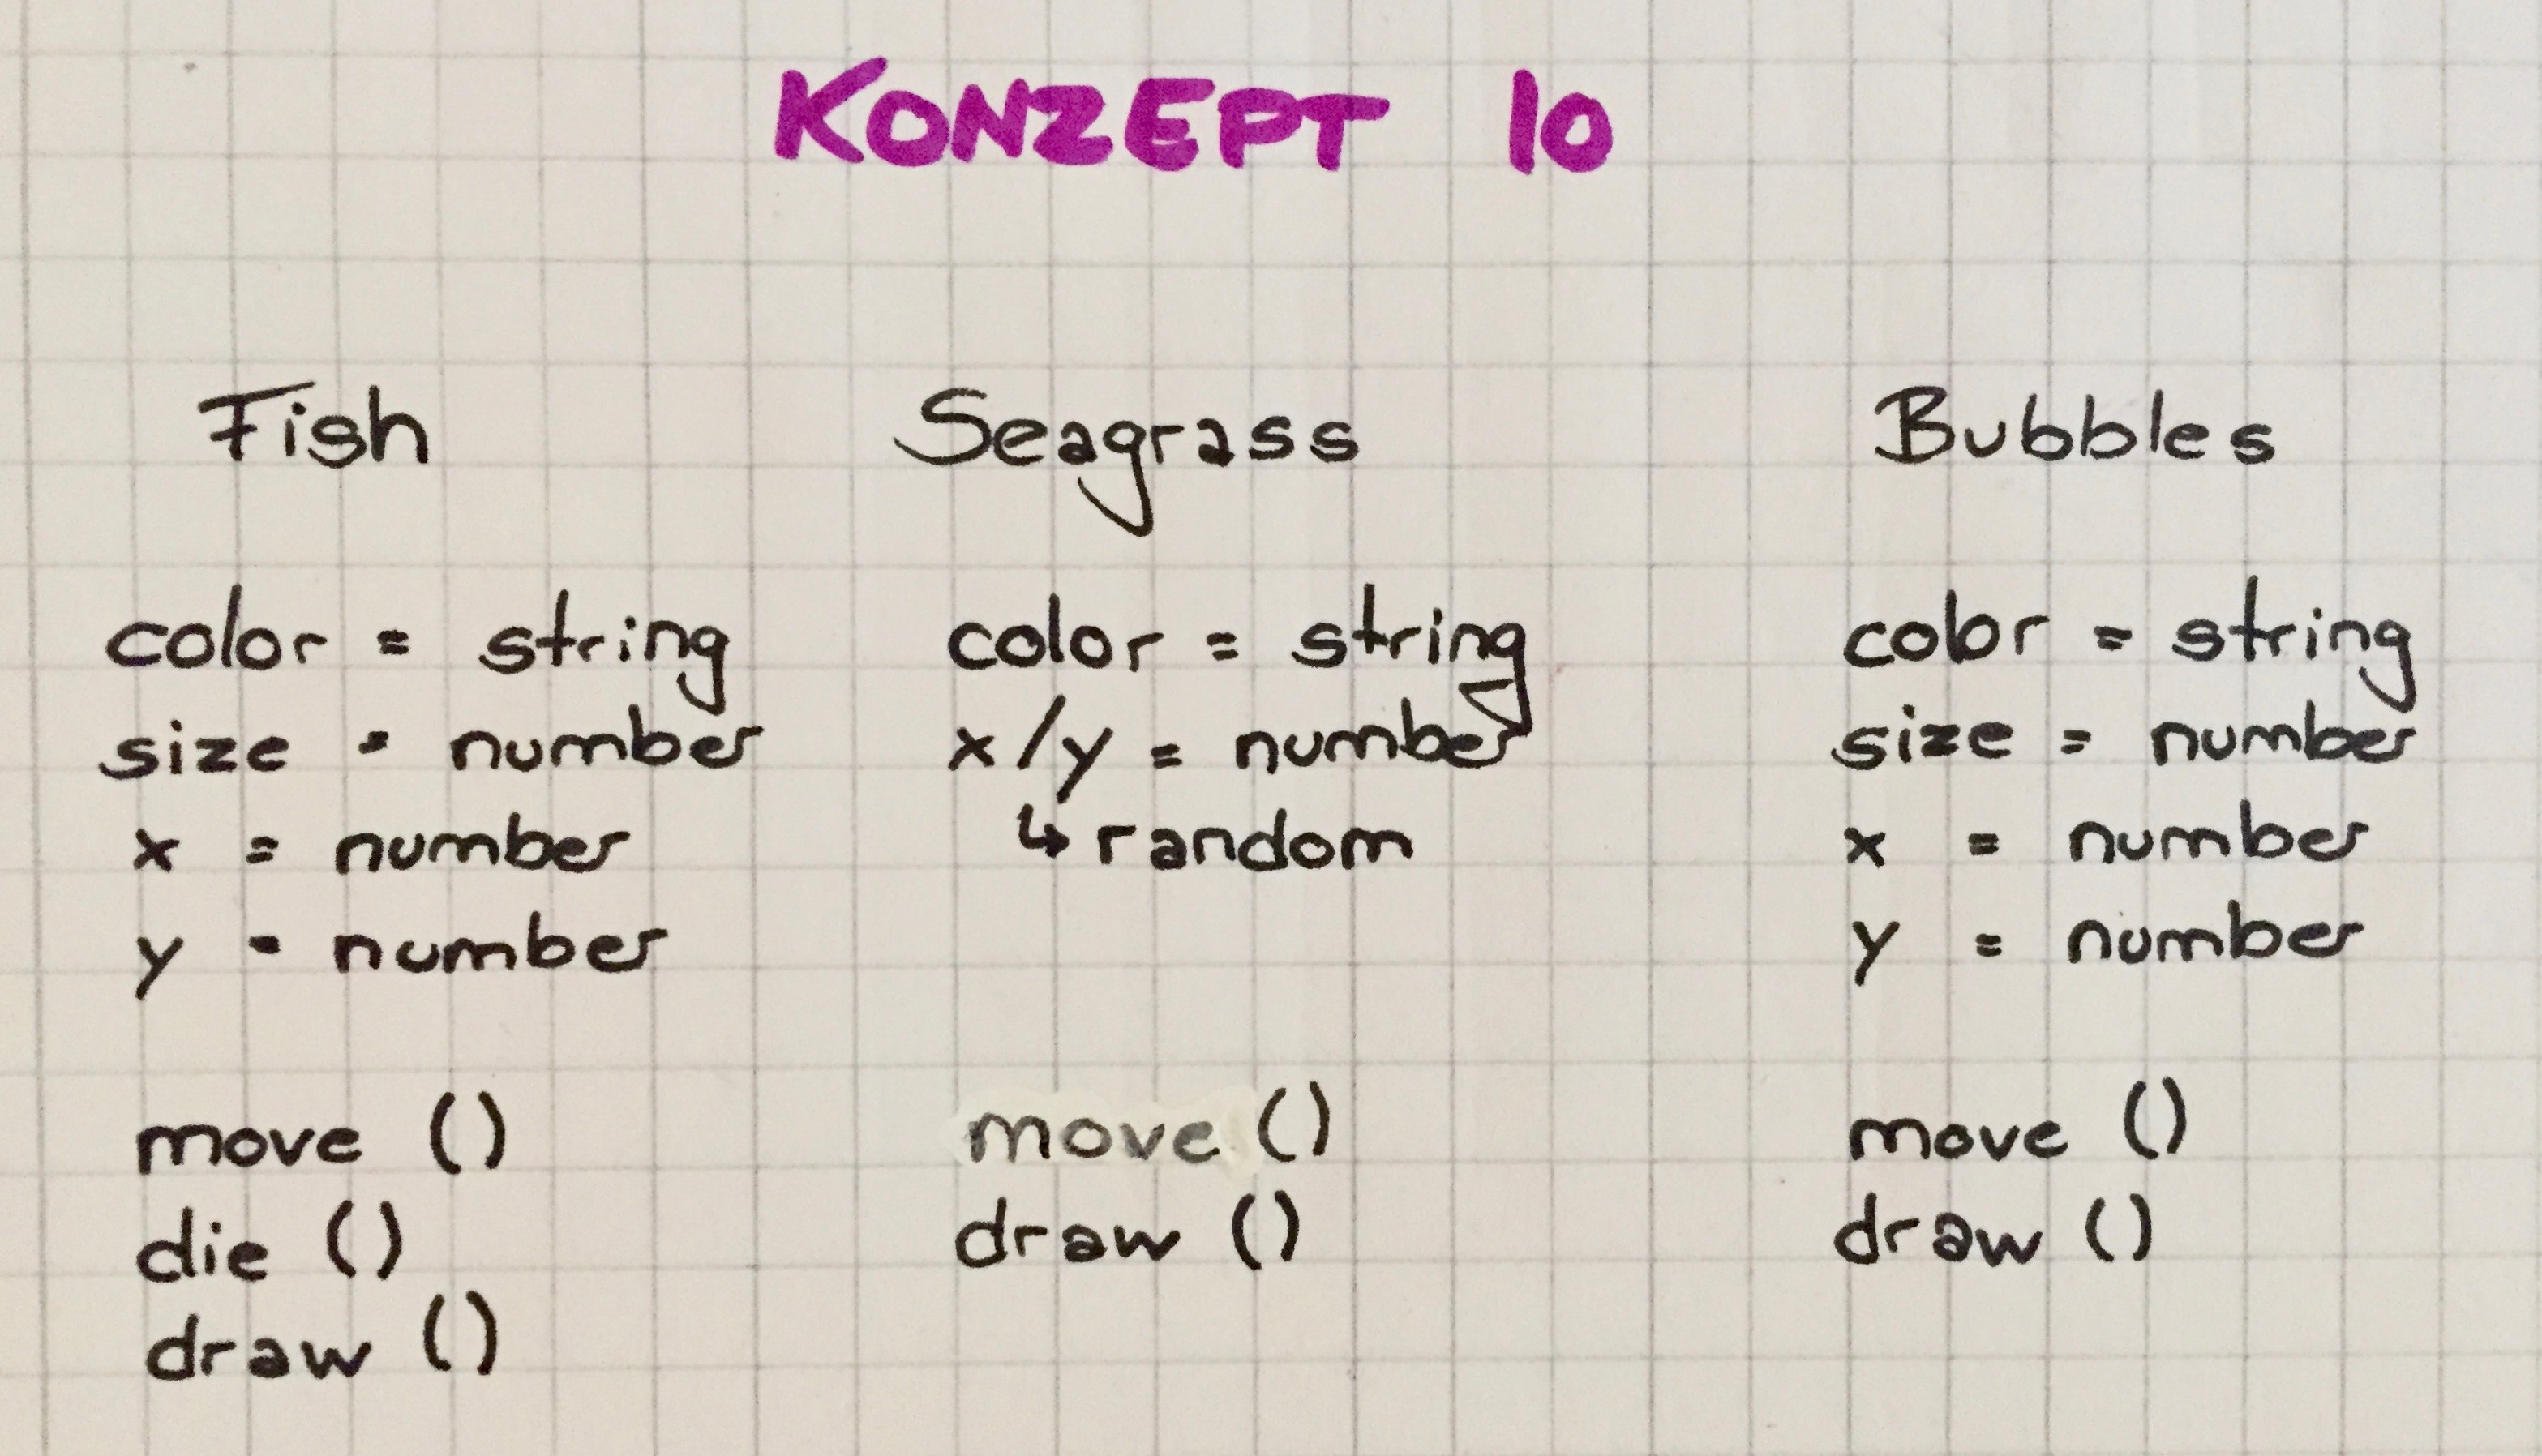 KONZEPT 10
Fish
color = string
size = number
x = number
y = number
move ()
die ()
draw ()
Seagrass
color = string
x/y = number
↳ random
move ()
draw ()
Bubbles
color = string
size = number
x = number
y = number
move ()
draw ()